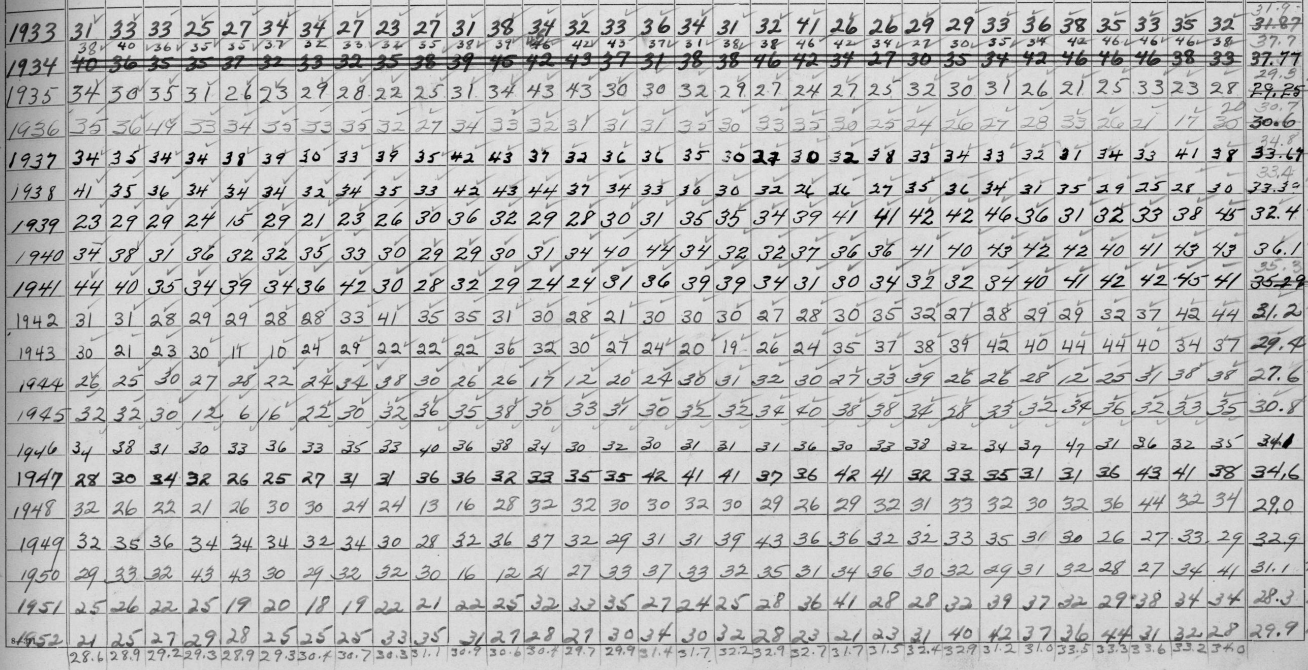 31.9
1933 31 33 33 25 27 34 34 27 23 27 31 38 34 32 33 36 34 31 32 41 26 26 29 29 33 36 38 35 33 35 32 31.87
38 40 36 35 35 37 32 33 32 35 38 39 45 42 43 37 31 38 38 46 42 34 27 30 35 34 42 46 46 46 38 37.7
1934 40 36 35 35 37 32 33 32 35 38 39 45 42 43 37 31 38 38 46 42 34 27 30 35 34 42 46 46 46 38 33 37.77
29.3
1935 34 30 35 31 26 23 29 28 22 25 31 34 43 43 30 30 32 29 27 24 27 25 32 30 31 26 21 25 33 23 28 29.25
20 30.7
1936 35 36 49 33 34 35 33 35 32 27 34 33 32 31 31 31 35 30 33 35 30 25 24 26 27 28 33 26 21 17 30 30.6
34.8
1937 34 35 34 34 38 39 30 33 39 35 42 43 37 32 36 36 35 30 27 30 32 38 33 34 33 32 31 34 33 41 38 33.67
33.4
1938 41 35 36 34 34 34 32 34 35 33 42 43 44 37 34 33 30 30 32 26 26 27 35 36 34 31 35 29 25 28 30 33.30
1939 23 29 29 24 15 29 21 23 26 30 36 32 29 28 30 31 35 35 34 39 41 41 42 42 46 36 31 32 33 38 45 32.4
1940 34 38 31 36 32 32 35 33 30 29 29 30 31 34 40 44 34 32 32 37 36 36 41 40 43 42 42 40 41 43 43 36.1
35.3
1941 44 40 35 34 39 34 36 42 30 28 32 29 24 24 31 36 39 39 34 31 30 34 32 32 34 40 41 42 42 45 41 35.29
1942 31 31 28 29 29 28 28 33 41 35 35 31 30 28 21 30 30 30 27 28 30 35 32 27 28 29 29 32 37 42 44 31.2
1943 30 21 23 30 19 10 24 29 22 22 22 36 32 30 27 24 20 19 26 24 35 37 38 39 42 40 44 44 40 34 37 29.4
1944 26 25 30 27 28 22 24 34 38 30 26 26 17 12 20 24 30 31 32 30 27 33 39 26 26 28 12 25 31 38 38 27.6
1945 32 32 30 12 6 16 22 30 32 36 35 38 30 33 31 30 32 32 34 40 38 38 34 28 33 32 34 36 32 33 35 30.8
1946 34 38 31 30 33 36 33 35 33 40 36 38 24 30 32 30 31 31 31 36 30 33 38 32 34 37 47 31 36 32 35 34.1
1947 28 30 34 32 26 25 27 31 31 36 36 32 33 35 35 42 41 41 37 36 42 41 32 33 35 31 31 36 43 41 38 34.6
1948 32 26 22 21 26 30 30 24 24 13 16 28 32 32 30 30 32 30 29 26 29 32 31 33 32 30 32 36 44 32 34 29.0
1949 32 35 36 34 34 34 32 34 30 28 32 36 37 32 29 31 31 39 43 36 36 32 32 33 35 31 30 26 27 33 29 32.9
1950 29 33 32 43 43 30 29 32 32 30 16 12 21 27 33 37 33 32 35 31 34 36 30 32 29 31 32 28 27 34 41 31.1
1951 25 26 22 25 19 20 18 19 22 21 22 25 32 33 35 27 24 25 28 36 41 28 28 32 39 37 32 29 38 34 34 28.3
1952 21 25 27 29 28 25 25 25 33 35 31 27 28 27 30 34 30 32 28 23 21 23 31 40 42 37 36 44 31 32 28 29.9
28.6 28.9 29.2 29.3 28.9 29.3 30.4 30.7 30.3 31.1 30.9 30.6 30.4 29.7 29.9 31.4 31.7 32.2 32.9 32.7 31.7 31.5 32.4 32.9 31.2 31.0 33.5 33.3 33.6 33.2 34.0